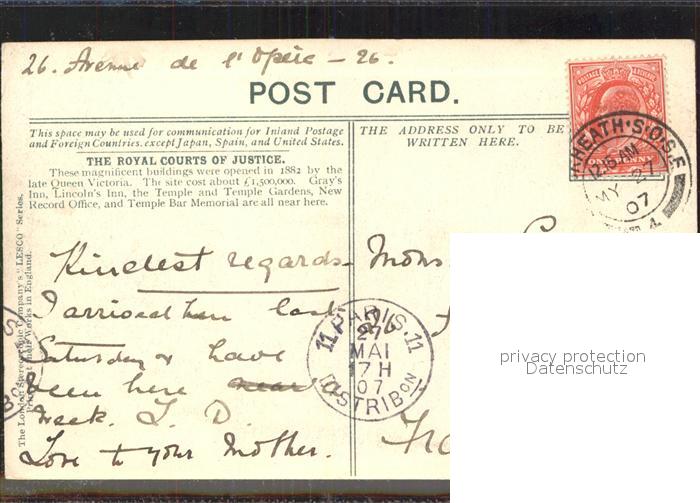 26. Avenue de l'Opéra - 26.
POST CARD.
This space may be used for communication for Inland Postage
and Foreign Countries, except Japan, Spain, and United States.
THE ROYAL COURTS OF JUSTICE.
These magnificent buildings were opened in 1882 by the
late Queen Victoria. The site cost about £1,500,000. Gray's
Inn, Lincoln's Inn, the Temple and Temple Gardens, New
Record Office, and Temple Bar Memorial are all near here.
The London Stereoscopic Company's "LESCO" Series.
Printed at their Works in England.
Kindest regards -
I arrived here last
Saturday & have
been here near
week. L. D.
Love to your Mother.
THE ADDRESS ONLY TO BE
WRITTEN HERE.
POSTAGE & REVENUE
ONE PENNY
HEATH·S.O.S.E
12.15 AM
MY 27
07
Mons
PARIS. 11
27
MAI
7 H
07
DISTRIBON
privacy protection
Datenschutz